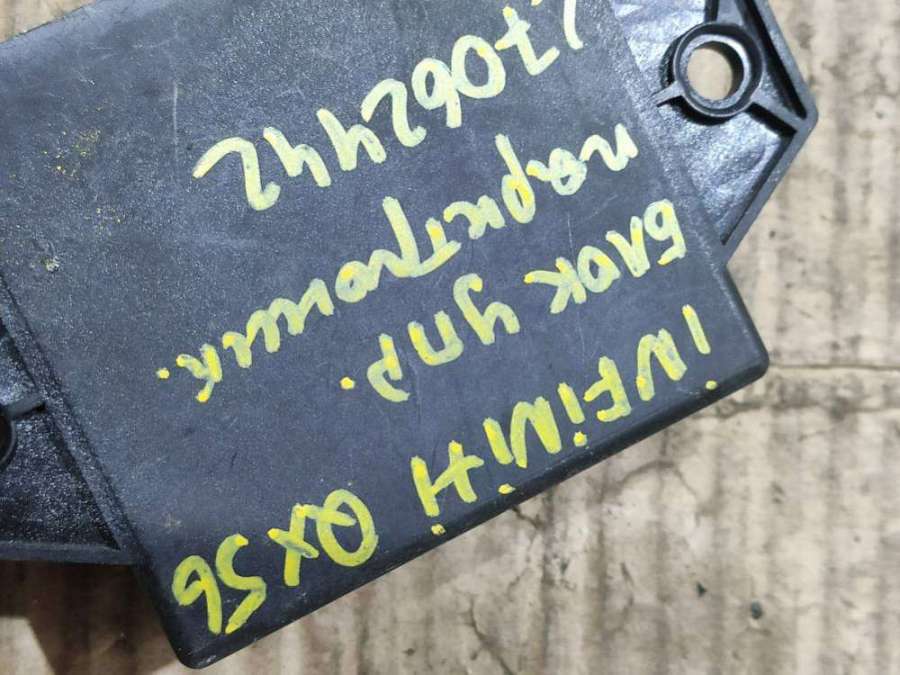 iNFiNiTi QX56
БЛОК УПР.
парктроник.
17062442